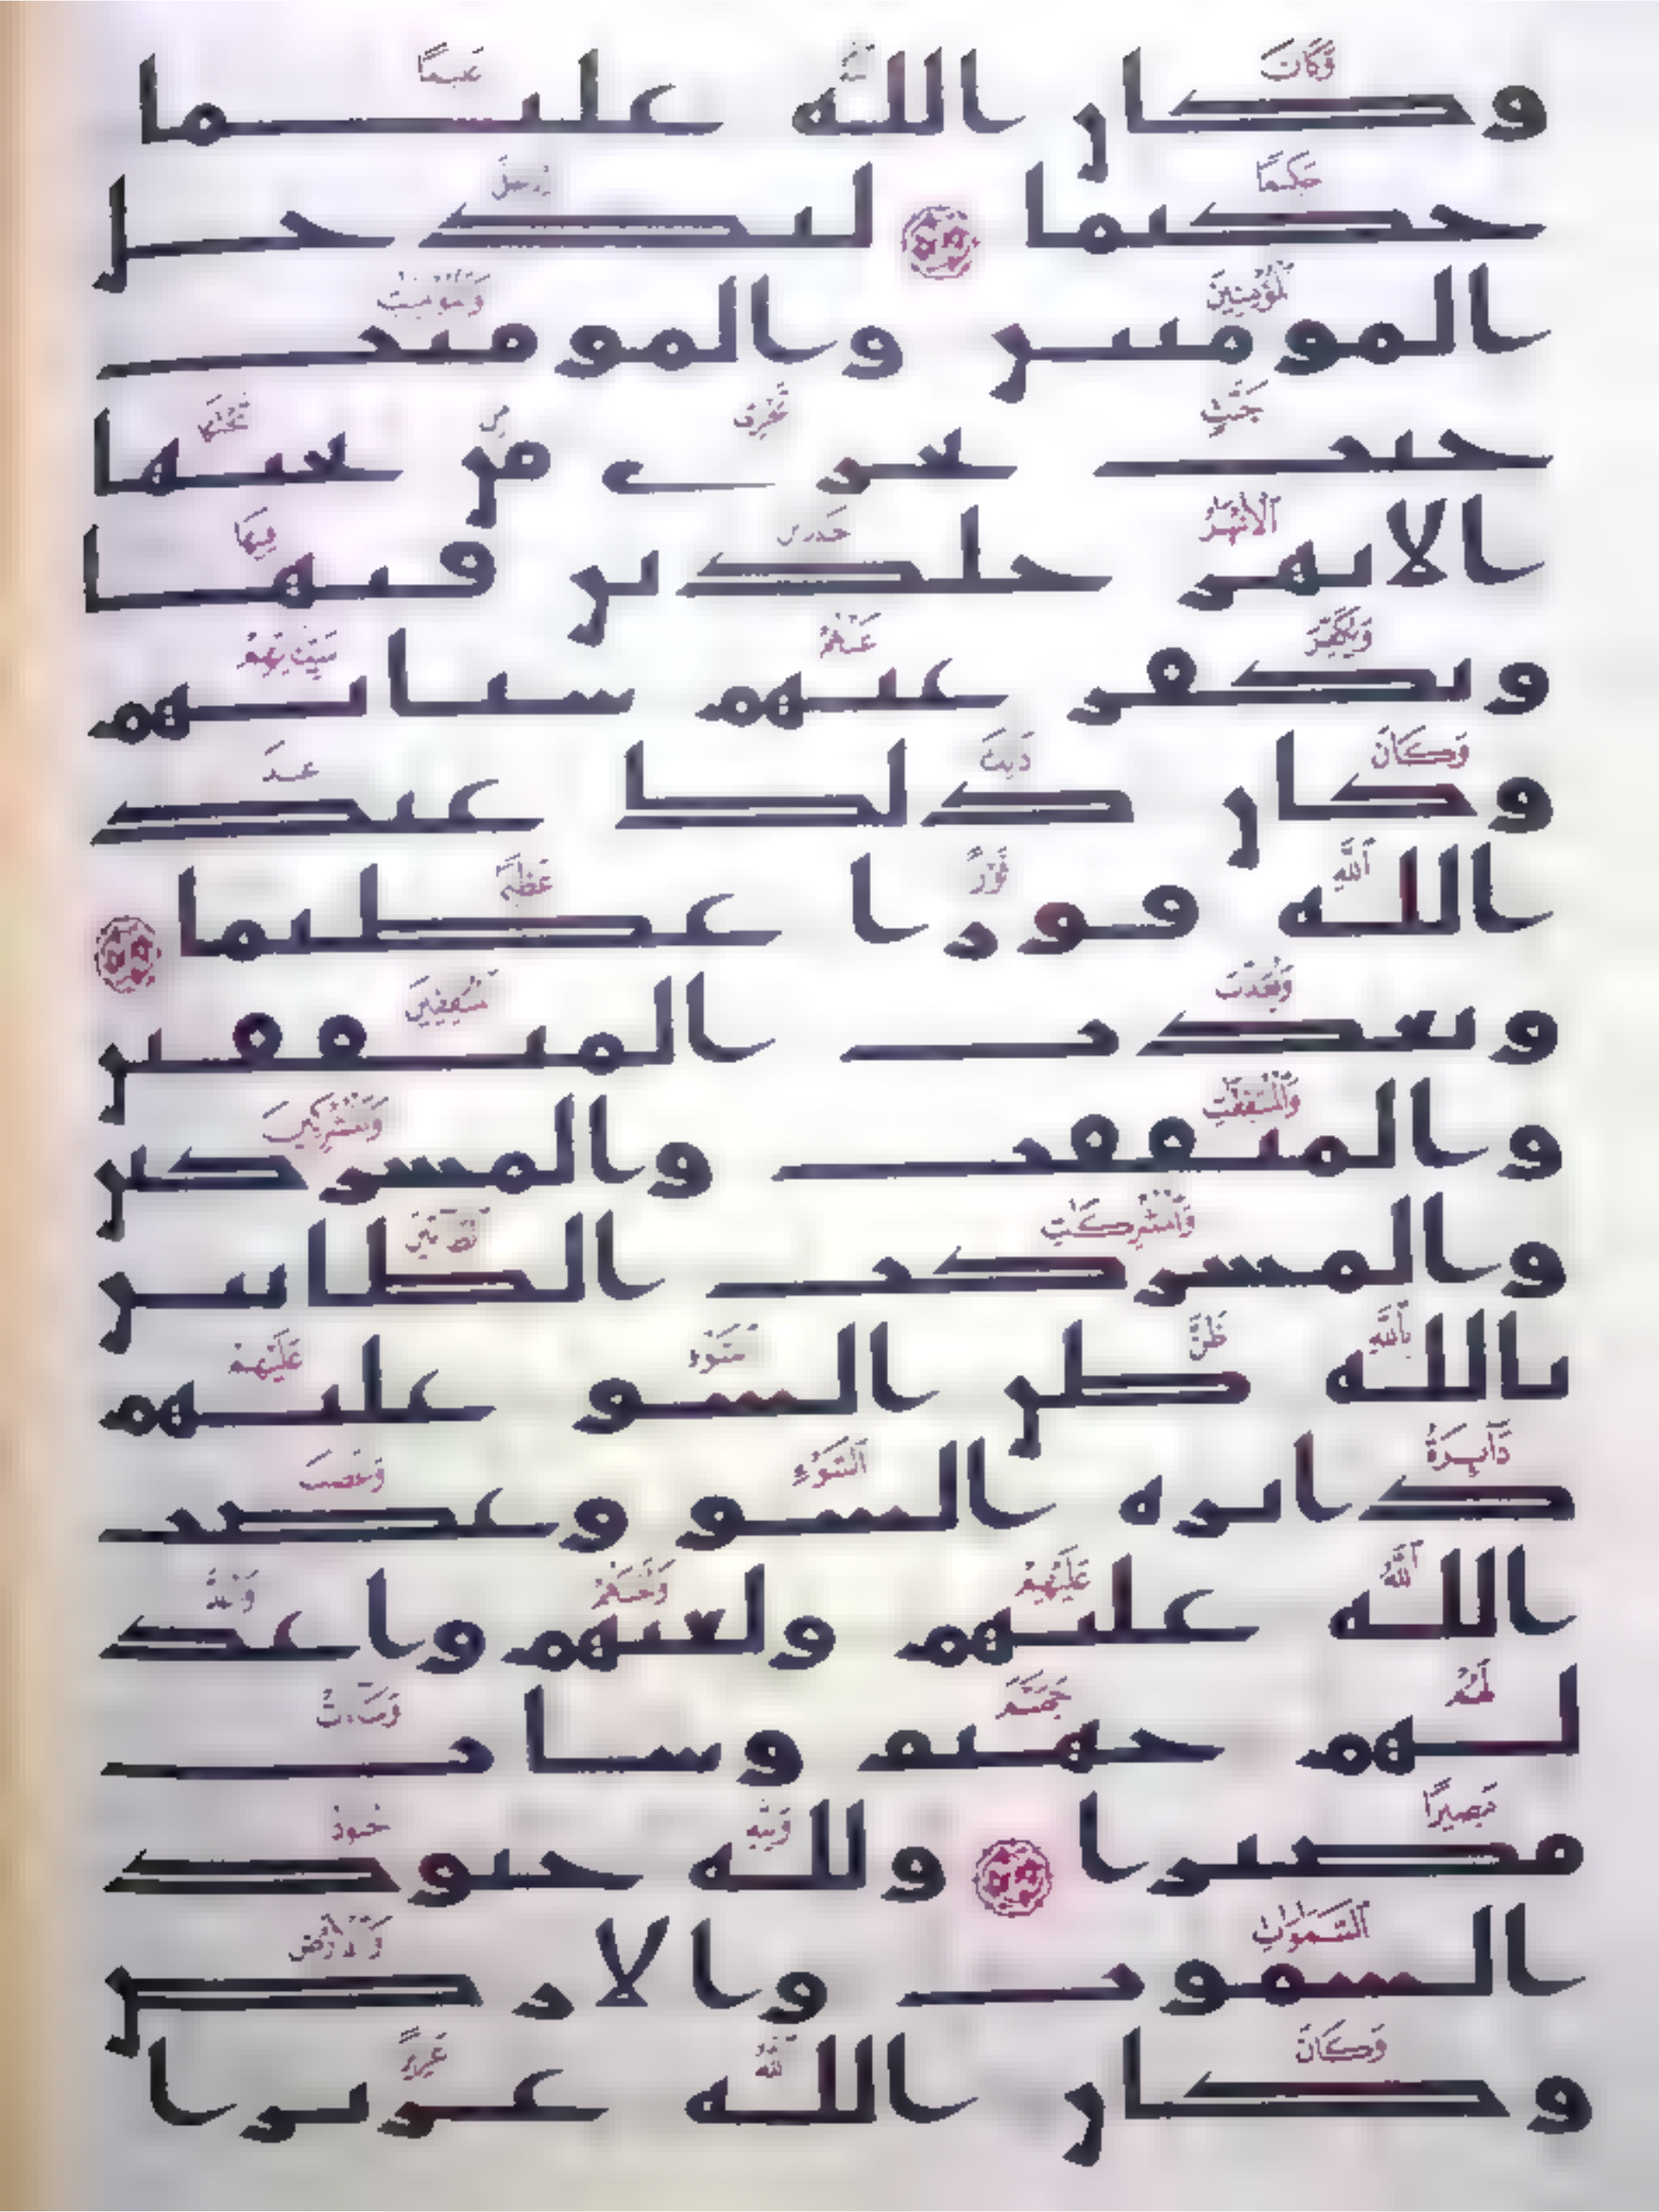 وكان الله عليما
حكيما ليدخل
المومنين والمومنت
جنت تجرى من تحتها
الانهر خلدين فيها
ويكفر عنهم سياتهم
وكان ذلك عند
الله فوزا عظيما
ويعذب المنفقين
والمنفقت والمشركين
والمشركت الظانين
بالله ظن السو عليهم
دايره السو وغضب
الله عليهم ولعنهم واعد
لهم جهنم وسات
مصيرا ولله جنود
السموت والارض
وكان الله عزيزا